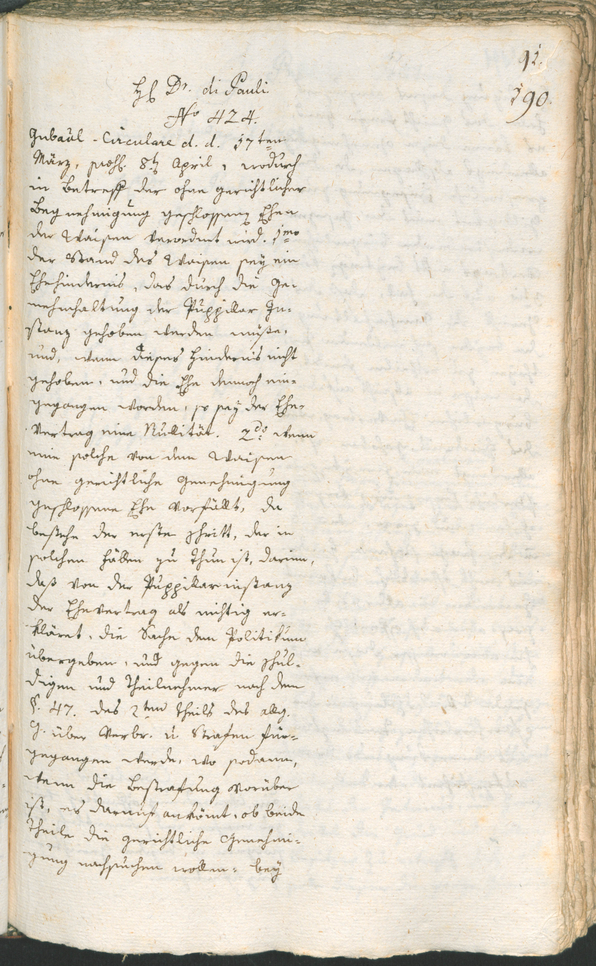 91.
190.
H Dr. di Pauli
No 424.
Gubaul-Circulare d. d. 17ten
März, praes. 8ten April, wodurch
in Betreff der ohne gerichtlicher
Begnehmigung geschlossenen Ehen
der Waisen verordnet wird. 1mo
der Stand des Waisen sey ein
Ehehinderniß, das durch die Ge-
nehmhaltung der Puppillar In-
stanz gehoben werden müße,
und, wann dieses Hinderniß nicht
gehoben, und die Ehe dennoch ein-
gegangen worden, so sey der Ehe-
vertrag eine Nullität. 2do wenn
eine solche von dem Waisen
ohne gerichtliche Genehmigung
geschlossene Ehe vorfällt, da
bestehe der erste Schritt, der in
solchen Fällen zu thun ist, darinn,
daß von der Puppillarinstanz
der Ehevertrag als nichtig er-
kläret, die Sache dem Politikum
übergeben, und gegen die Schul-
digen und Theilnehmer nach dem
§. 47. des 2ten Theils des allg.
G. über Verbr. u. Strafen für-
gegangen werde, wo sodann,
wenn die Bestrafung vorüber
ist, es darauf ankömt, ob beide
Theile die gerichtliche Genehmi-
gung nachsuchen wollen- bey